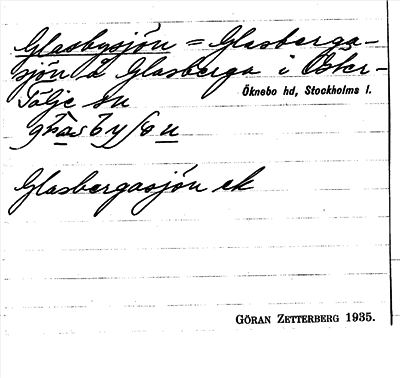 Glasbysjön = Glasberga-
sjön å Glasberga i Öster-
Tälje sn
Öknebo hd, Stockholms l.
Glasbergasjön ek
GÖRAN ZETTERBERG 1935.